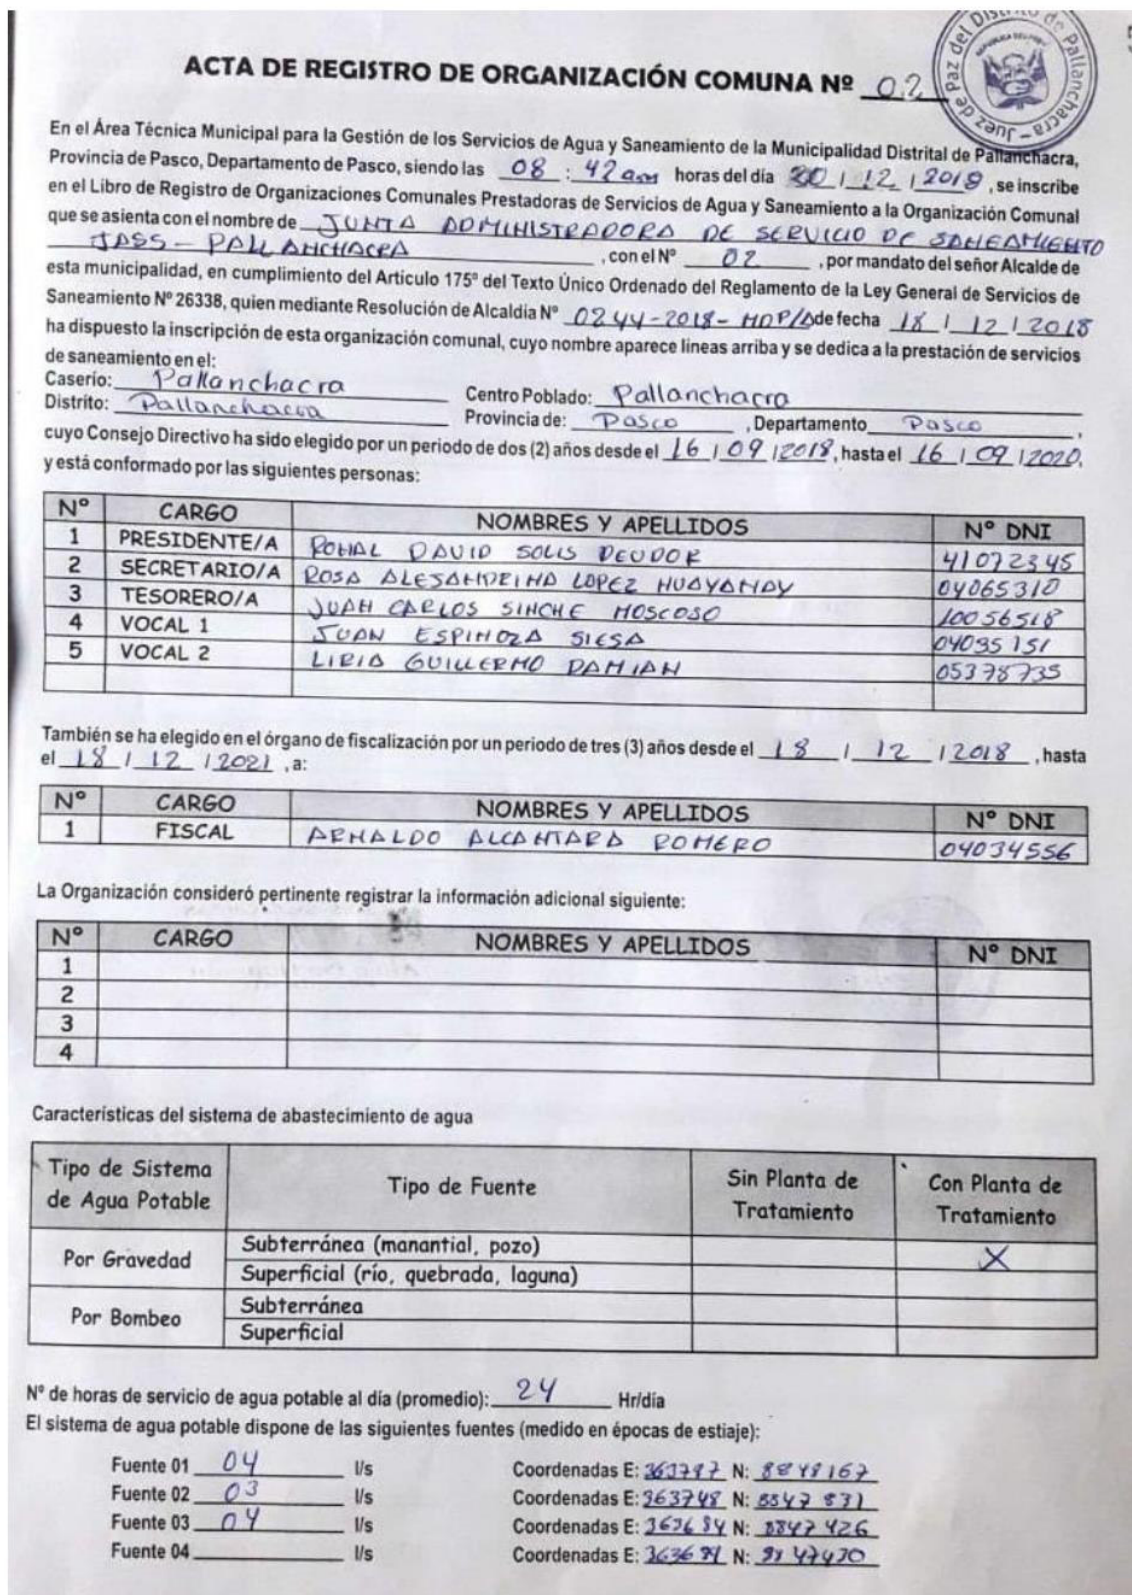 Juez de Paz del Distrito de Pallanchacra
ACTA DE REGISTRO DE ORGANIZACIÓN COMUNA Nº 02
En el Área Técnica Municipal para la Gestión de los Servicios de Agua y Saneamiento de la Municipalidad Distrital de Pallanchacra,
Provincia de Pasco, Departamento de Pasco, siendo las 08 : 42 am horas del día 20 / 12 / 2018 , se inscribe
en el Libro de Registro de Organizaciones Comunales Prestadoras de Servicios de Agua y Saneamiento a la Organización Comunal
que se asienta con el nombre de JUNTA ADMINISTRADORA DE SERVICIO DE SANEAMIENTO
JASS - PALLANCHACRA , con el Nº 02 , por mandato del señor Alcalde de
esta municipalidad, en cumplimiento del Articulo 175º del Texto Único Ordenado del Reglamento de la Ley General de Servicios de
Saneamiento Nº 26338, quien mediante Resolución de Alcaldía Nº 0244-2018-MDP/A de fecha 18 / 12 / 2018
ha dispuesto la inscripción de esta organización comunal, cuyo nombre aparece líneas arriba y se dedica a la prestación de servicios
de saneamiento en el:
Caserío: Pallanchacra Centro Poblado: Pallanchacra
Distrito: Pallanchacra Provincia de: Pasco , Departamento Pasco ,
cuyo Consejo Directivo ha sido elegido por un periodo de dos (2) años desde el 16 / 09 / 2018, hasta el 16 / 09 / 2020,
y está conformado por las siguientes personas:
Nº CARGO NOMBRES Y APELLIDOS Nº DNI
1 PRESIDENTE/A RONAL DAVID SOLIS DEUDOR 41072345
2 SECRETARIO/A ROSA ALEJANDRINA LOPEZ HUAYANAY 04065310
3 TESORERO/A JUAN CARLOS SINCHE MOSCOSO 10056518
4 VOCAL 1 JUAN ESPINOZA SIESA 04035151
5 VOCAL 2 LIRIA GUILLERMO DAMIAN 05378735
También se ha elegido en el órgano de fiscalización por un periodo de tres (3) años desde el 18 / 12 / 2018 , hasta
el 18 / 12 / 2021 , a:
Nº CARGO NOMBRES Y APELLIDOS Nº DNI
1 FISCAL ARNALDO ALCANTARA ROMERO 04034556
La Organización consideró pertinente registrar la información adicional siguiente:
Nº CARGO NOMBRES Y APELLIDOS Nº DNI
1
2
3
4
Características del sistema de abastecimiento de agua
Tipo de Sistema de Agua Potable Tipo de Fuente Sin Planta de Tratamiento Con Planta de Tratamiento
Por Gravedad Subterránea (manantial, pozo) X
Superficial (río, quebrada, laguna)
Por Bombeo Subterránea
Superficial
Nº de horas de servicio de agua potable al día (promedio): 24 Hr/día
El sistema de agua potable dispone de las siguientes fuentes (medido en épocas de estiaje):
Fuente 01 04 l/s Coordenadas E: 363787 N: 8848167
Fuente 02 03 l/s Coordenadas E: 363748 N: 8847831
Fuente 03 04 l/s Coordenadas E: 363684 N: 8847426
Fuente 04 l/s Coordenadas E: N: